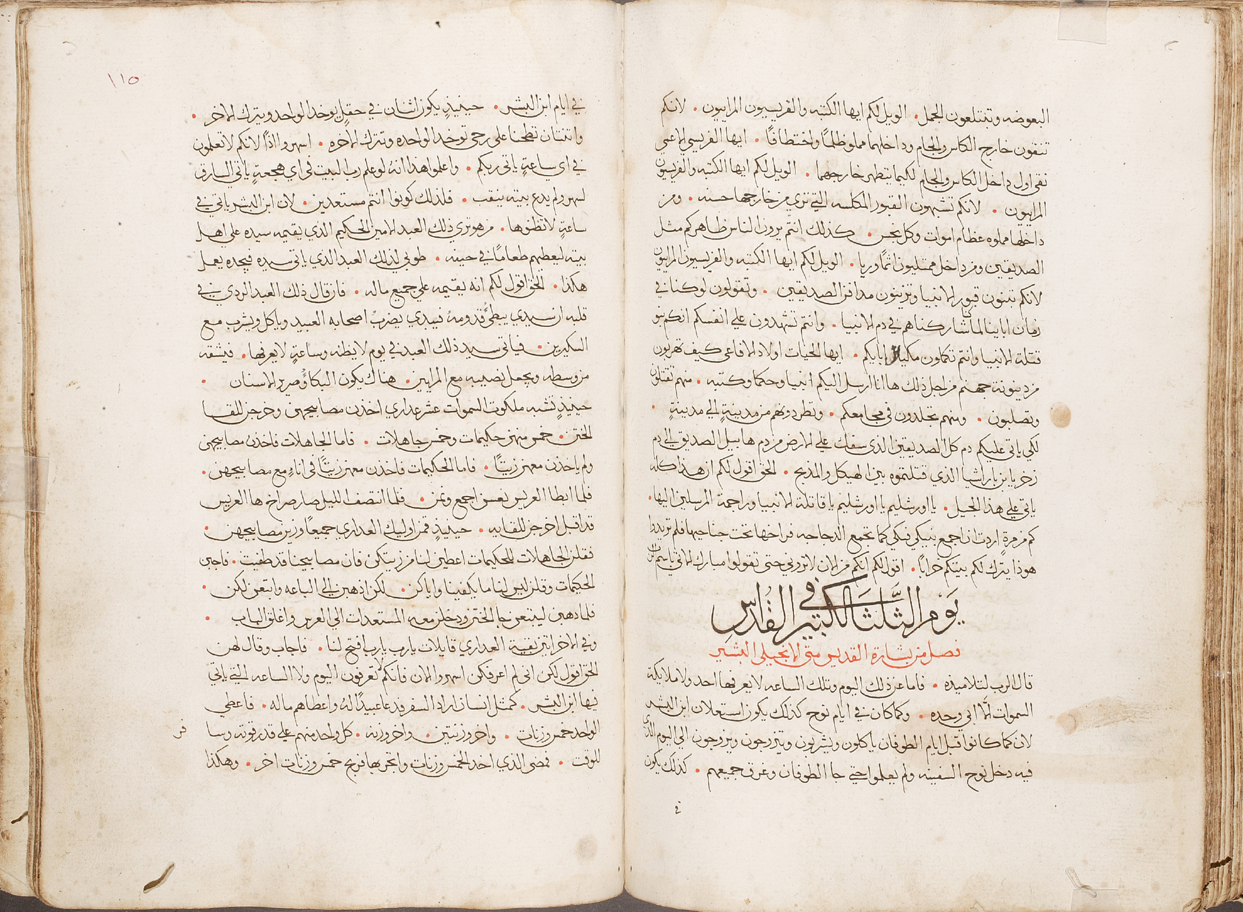 البعوضه وتبتلعون الجمل. الويل لكم ايها الكتبه والفريسيون المرايون. لانكم
تنقون خارج الكاس والجام وداخلهما مملو ظلمًا واختطافًا. ايها الفريسي الاعمى
نقي اولا داخل الكاس والجام لكيما يتطهر خارجهما. الويل لكم ايها الكتبه والفريسيون
المرايون. لانكم تشبهون القبور المكلسه التي ترى من خارجها حسنه. ومن
داخلها مملوه عظام اموات وكل نجس. كذلك انتم يرون الناس ظاهركم مثل
الصديقين ومن داخل ممتليون اثمًا وريا. الويل لكم ايها الكتبه والفريسيون المرايون
لانكم تبنون قبور الانبيا وتزينون مدافن الصديقين. وتقولون لو كنا في
زمان اباينا لما شاركناهم في دم الانبيا. وانتم تشهدون على انفسكم انكم بنو
قتلة الانبيا وانتم تكملون مكيال ابايكم. ايها الحيات اولاد الافاعي كيف تهربون
من دينونة جهنم من اجل ذلك هاانا ارسل اليكم انبيا وحكما وكتبه. منهم تقتلون
وتصلبون. ومنهم تجلدون في مجامعكم. وتطردونهم من مدينةٍ الى مدينةٍ.
لكي ياتي عليكم دم كل الصديقين الذي سفك على الارض من دم هابيل الصديق الى دم
زخريا بن باراشيا الذي قتلتموه بين الهيكل والمذبح. الحق اقول لكم ان هذا كله
ياتي على هذا الجيل. يا اورشليم يا اورشليم يا قاتلة الانبيا وراجمة المرسلين اليها.
كم من مرةٍ اردت ان اجمع بنيكي كما تجمع الدجاجه فراخها تحت جناحيها فلم تريدوا
هوذا يترك لكم بيتكم خرابًا. اقول لكم انكم من الان لا تروني حتى تقولوا مبارك الاتي باسم الرب
يوم الثلثا الكبير في القداس
فصل من بشارة القديس متى الانجيلي البشير
قال الرب لتلاميذه. فاما عن ذلك اليوم وتلك الساعه لا يعرفها احد ولا ملايكة
السموات الّا ابي وحده. وكما كان في ايام نوح كذلك يكون استعلان ابن البشر
لان كما كانوا قبل ايام الطوفان ياكلون ويشربون ويتزوجون ويزوجون الى اليوم الذي
فيه دخل نوح السفينه ولم يعلموا حتى جا الطوفان وغرق جميعهم. كذلك يكون
١١٥
في ايام ابن البشر. حينيذٍ يكون اثنان في حقلٍ يوخد الواحد ويترك الاخر.
واثنتان تطحنا على رحى توخد الواحده وتترك الاخره. اسهروا اذًا لانكم لا تعلمون
في اي ساعةٍ ياتي ربكم. واعلموا هذا انه لو علم رب البيت في اي هجعةٍ ياتي السارق
لسهر ولم يدع بيته ينقب. فلذلك كونوا انتم مستعدين. لان ابن البشر ياتي في
ساعةٍ لا تظنونها. من هو ترى ذلك العبد الامين الحكيم الذي يقيمه سيده على اهل
بيته ليعطيهم طعامًا في حينه. طوبى لذلك العبد الذي ياتي سيده فيجده يعمل
هكذا. الحق اقول لكم انه يقيمه على جميع ماله. فان قال ذلك العبد الردي في
قلبه ان سيدي يبطئ قدومه فيبدي يضرب اصحابه العبيد وياكل ويشرب مع
السكيرين. فياتي سيد ذلك العبد في يوم لا يظنه وساعةٍ لا يعرفها. فيشقه
من وسطه ويجعل نصيبه مع المرايين. هناك يكون البكا وصرير الاسنان.
حينيذٍ تشبه ملكوت السموات عشر عداري اخذن مصابيحهن وخرجن للقا
الختن. خمس منهن حكيمات وخمس جاهلات. فاما الجاهلات فاخذن مصابيحهن
ولم ياخذن معهن زيتًا. فاما الحكيمات فاخذن معهن زيتًا في اناء مع مصابيحهن.
فلما ابطا العريس نعسن اجمع ونمن. فلما انتصف الليل صار صراخ ها العريس
قد اقبل اخرجن للقايه. حينيذٍ قمن اوليك العداري جميعًا وزين مصابيحهن
فقلن الجاهلات للحكيمات اعطين لنا من زيتكن فان مصابيحنا قد طفيت. فاجبن
الحكيمات وقلن ليس لنا ما يكفينا واياكن. لكن اذهبن الى الباعه وابتعن لكن.
فلما ذهبن ليبتعن جا الختن ودخلن معه المستعدات الى العرس واغلق الباب.
وفي الاخر اتين بقية العداري قايلات يارب يارب افتح لنا. فاجاب وقال لهن
الحق اقول لكن اني لم اعرفكن اسهروا الان فانكم لا تعرفون اليوم ولا الساعه التي ياتي
فيها ابن البشر. كمثل انسان اراد السفر فدعا عبيدًا له واعطاهم ماله. فاعطى
الواحد خمس وزنات. واخر وزنتين. واخر وزنه. كل واحدٍ منهم على قدر قوته وسافر
للوقت. فمضى الذي اخد الخمس وزنات واتجر بها فربح خمس وزنات اخر. وهكذا